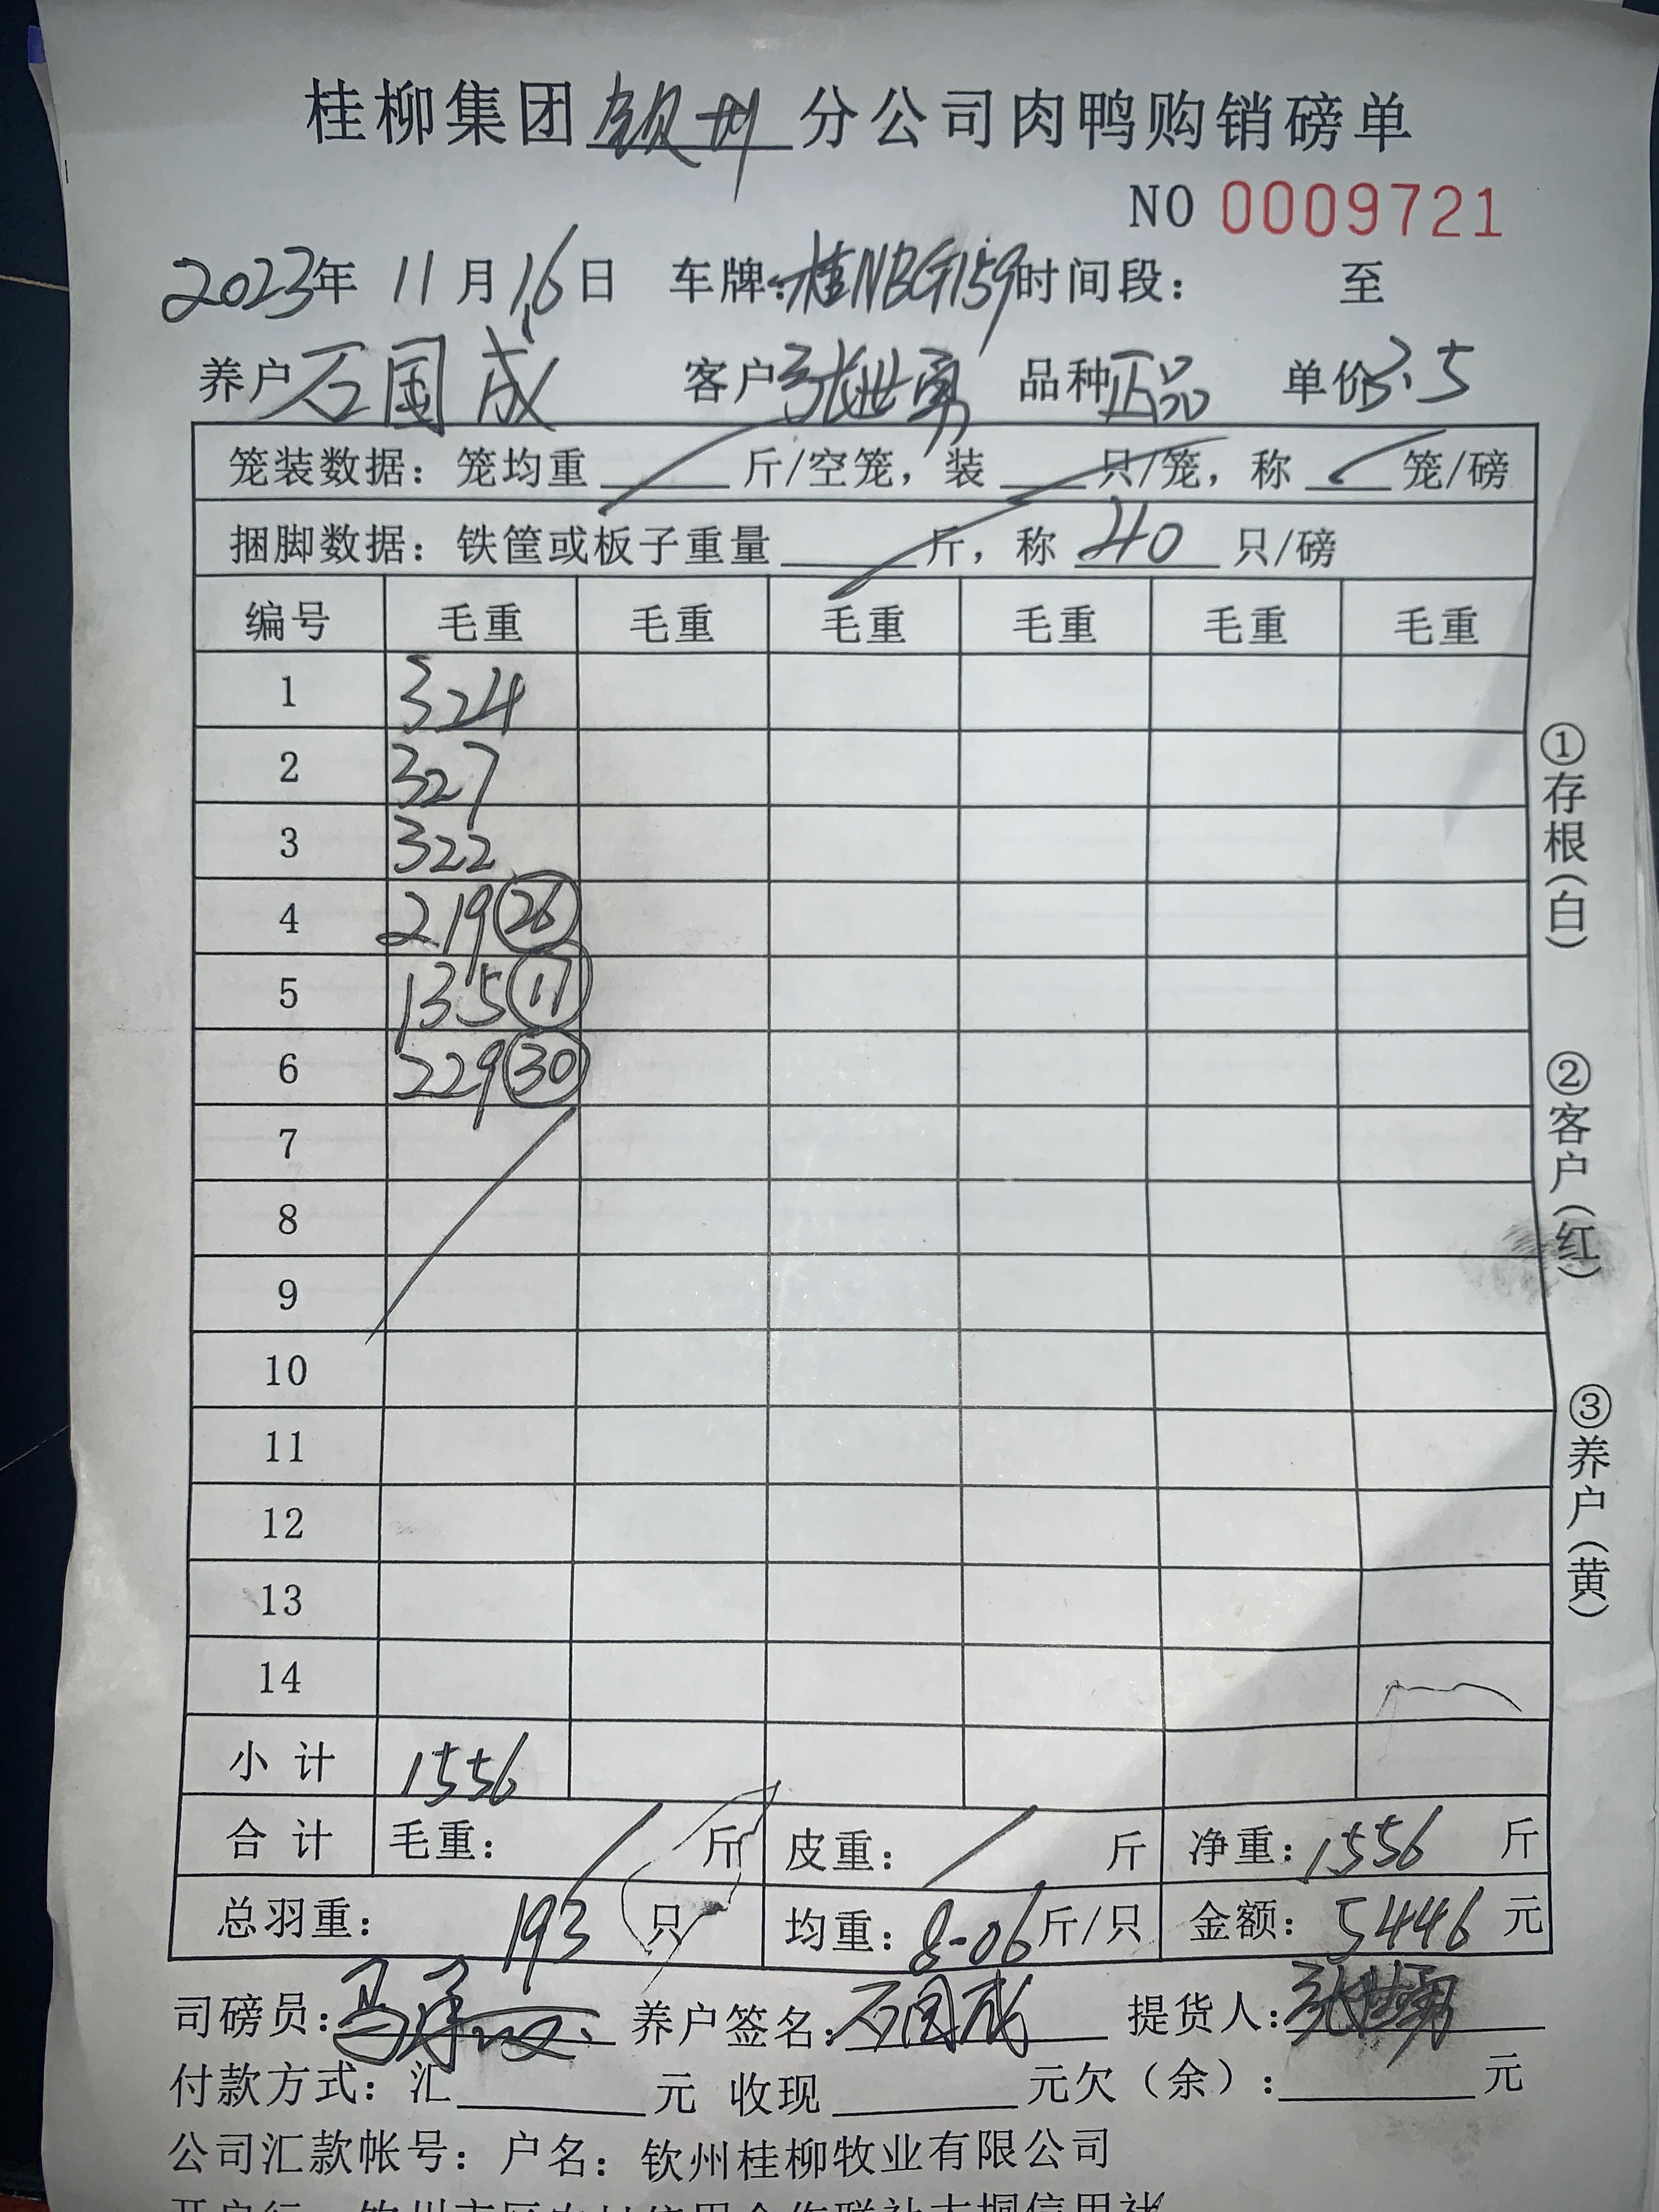 桂柳集团 钦州 分公司肉鸭购销磅单
NO 0009721
2023年 11月16日 车牌:桂NBG159 时间段: 至
养户 石国成 客户 张世勇 品种 正品 单价3.5
笼装数据:笼均重 斤/空笼,装 只/笼,称 笼/磅
捆脚数据:铁筐或板子重量 斤,称 40 只/磅
编号 毛重 毛重 毛重 毛重 毛重 毛重
1 324
2 327
3 322
4 219 26
5 135 17
6 229 30
7
8
9
10
11
12
13
14
小计 1556
合计 毛重: / 斤 皮重: / 斤 净重:1556 斤
总羽重: 193 只 均重:8-06斤/只 金额: 5446 元
①存根(白)
②客户(红)
③养户(黄)
司磅员: 养户签名:石国成 提货人:张世勇
付款方式:汇 元 收现 元欠(余): 元
公司汇款帐号:户名:钦州桂柳牧业有限公司